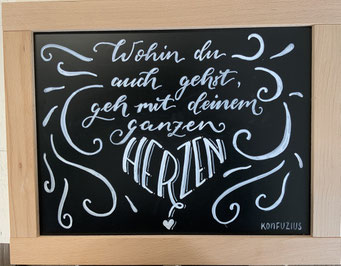 Wohin du
auch gehst,
geh mit deinem
ganzen
HERZEN
KONFUZIUS